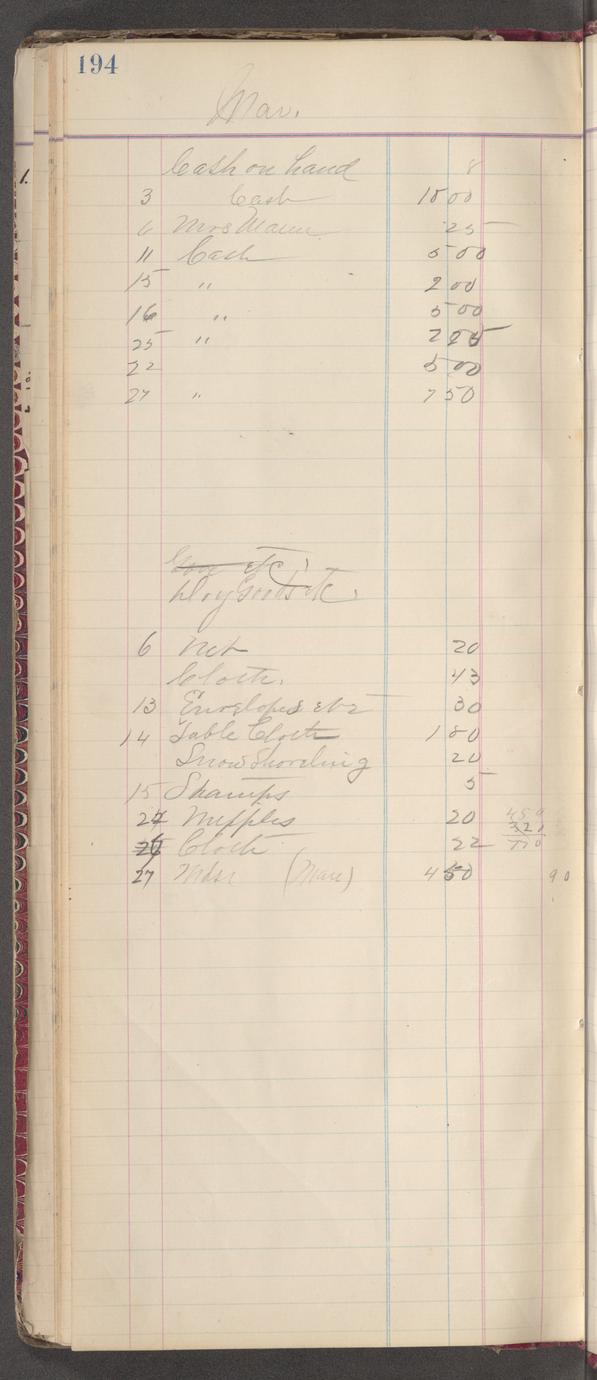 194
Mar.
Cash on hand 8
3 Cash 15 00
6 Mrs Mann 25
11 Cash 5 00
15 " 2 00
16 " 5 00
25 " 2 25
22 5 00
27 " 7 50
etc
Dry Goods etc.
6 Net 20
Cloth. 43
13 Envelopes etc 30
14 Table Cloth 1 80
Snow Shoveling 20
15 Stamps 5
24 Nipples 20
26 Cloth 22
27 Mdse (Mare) 4 50 90
450
320
770